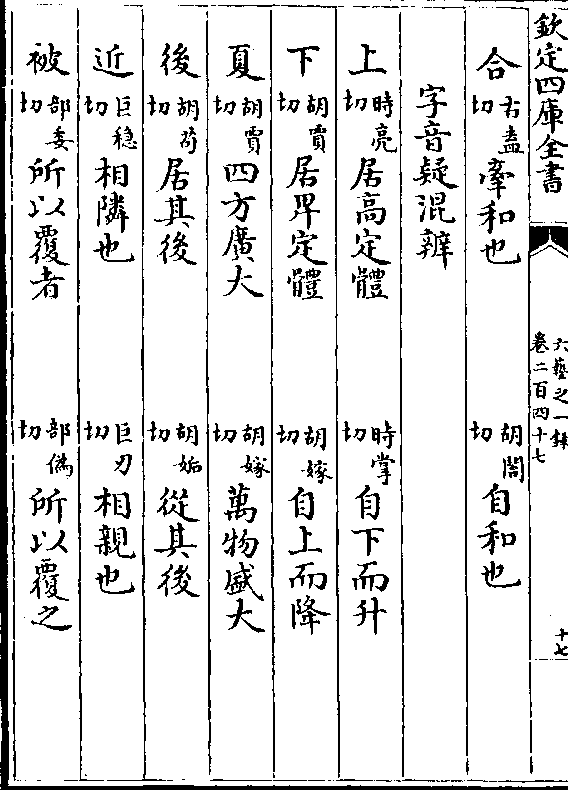 欽定四庫全書
六藝之一錄
卷二百四十七
十七
合 古盍切 牽和也 胡閤切 自和也
字音疑混辨
上 時亮切 居高定體 時掌切 自下而升
下 胡賈切 居卑定體 胡嫁切 自上而降
夏 胡賈切 四方廣大 胡嫁切 萬物盛大
後 胡茍切 居其後 胡姤切 從其後
近 巨穏切 相隣也 巨刃切 相親也
被 部委切 所以覆者 部僞切 所以覆之